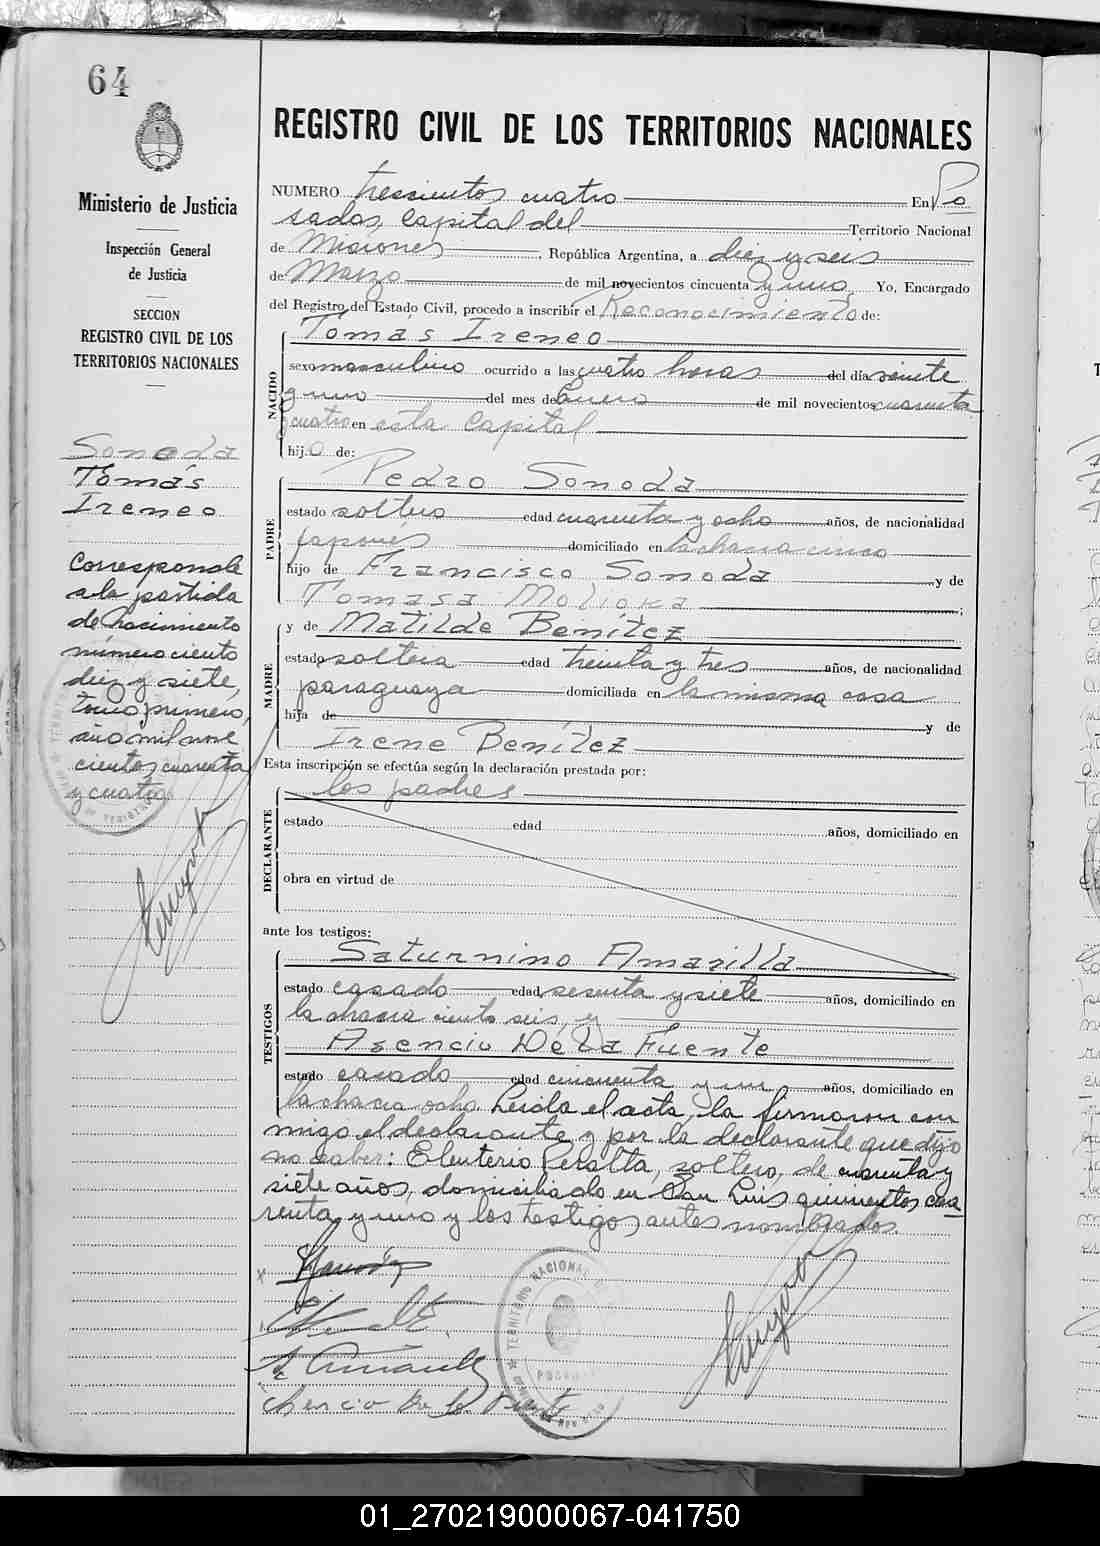 64
Ministerio de Justicia
Inspección General
de Justicia
SECCION
REGISTRO CIVIL DE LOS
TERRITORIOS NACIONALES
Sonoda
Tomás
Ireneo
Corresponde
a la partida
de Nacimiento
número ciento
diez y siete,
tomo primero,
año mil nove
cientos cuarenta
y cuatro
REGISTRO CIVIL DE LOS TERRITORIOS NACIONALES
NUMERO trescientos cuatro En Po
sadas, Capital del Territorio Nacional
de Misiones, República Argentina, a diez y seis
de Marzo de mil novecientos cincuenta y uno, Yo, Encargado
del Registro del Estado Civil, procedo a inscribir el Reconocimiento de:
NACIDO
Tomás Ireneo
sexo masculino ocurrido a las cuatro horas del día veinte
y uno del mes de Enero de mil novecientos cuarenta
y cuatro en esta Capital
hijo de:
PADRE
Pedro Sonoda
estado soltero edad cuarenta y ocho años, de nacionalidad
japonés domiciliado en la chacra cinco
hijo de Francisco Sonoda y de
Tomasa Molioka;
MADRE
y de Matilde Benítez
estado soltera edad treinta y tres años, de nacionalidad
paraguaya domiciliada en la misma casa
hija de y de
Irene Benítez
Esta inscripción se efectúa según la declaración prestada por:
DECLARANTE
los padres
estado edad años, domiciliado en
obra en virtud de
ante los testigos:
TESTIGOS
Saturnino Amarilla
estado casado edad sesenta y siete años, domiciliado en
la chacra ciento seis, y
Asencio De la Fuente
estado casado edad cincuenta y un años, domiciliado en
la chacra ocho. Leída el acta, la firmaron con
migo el declarante y por la declarante que dijo
no saber: Eleuterio Peralta, soltero, de cuarenta y
siete años, domiciliado en San Luis quinientos cua
renta y uno y los testigos antes nombrados.
01_270219000067-041750